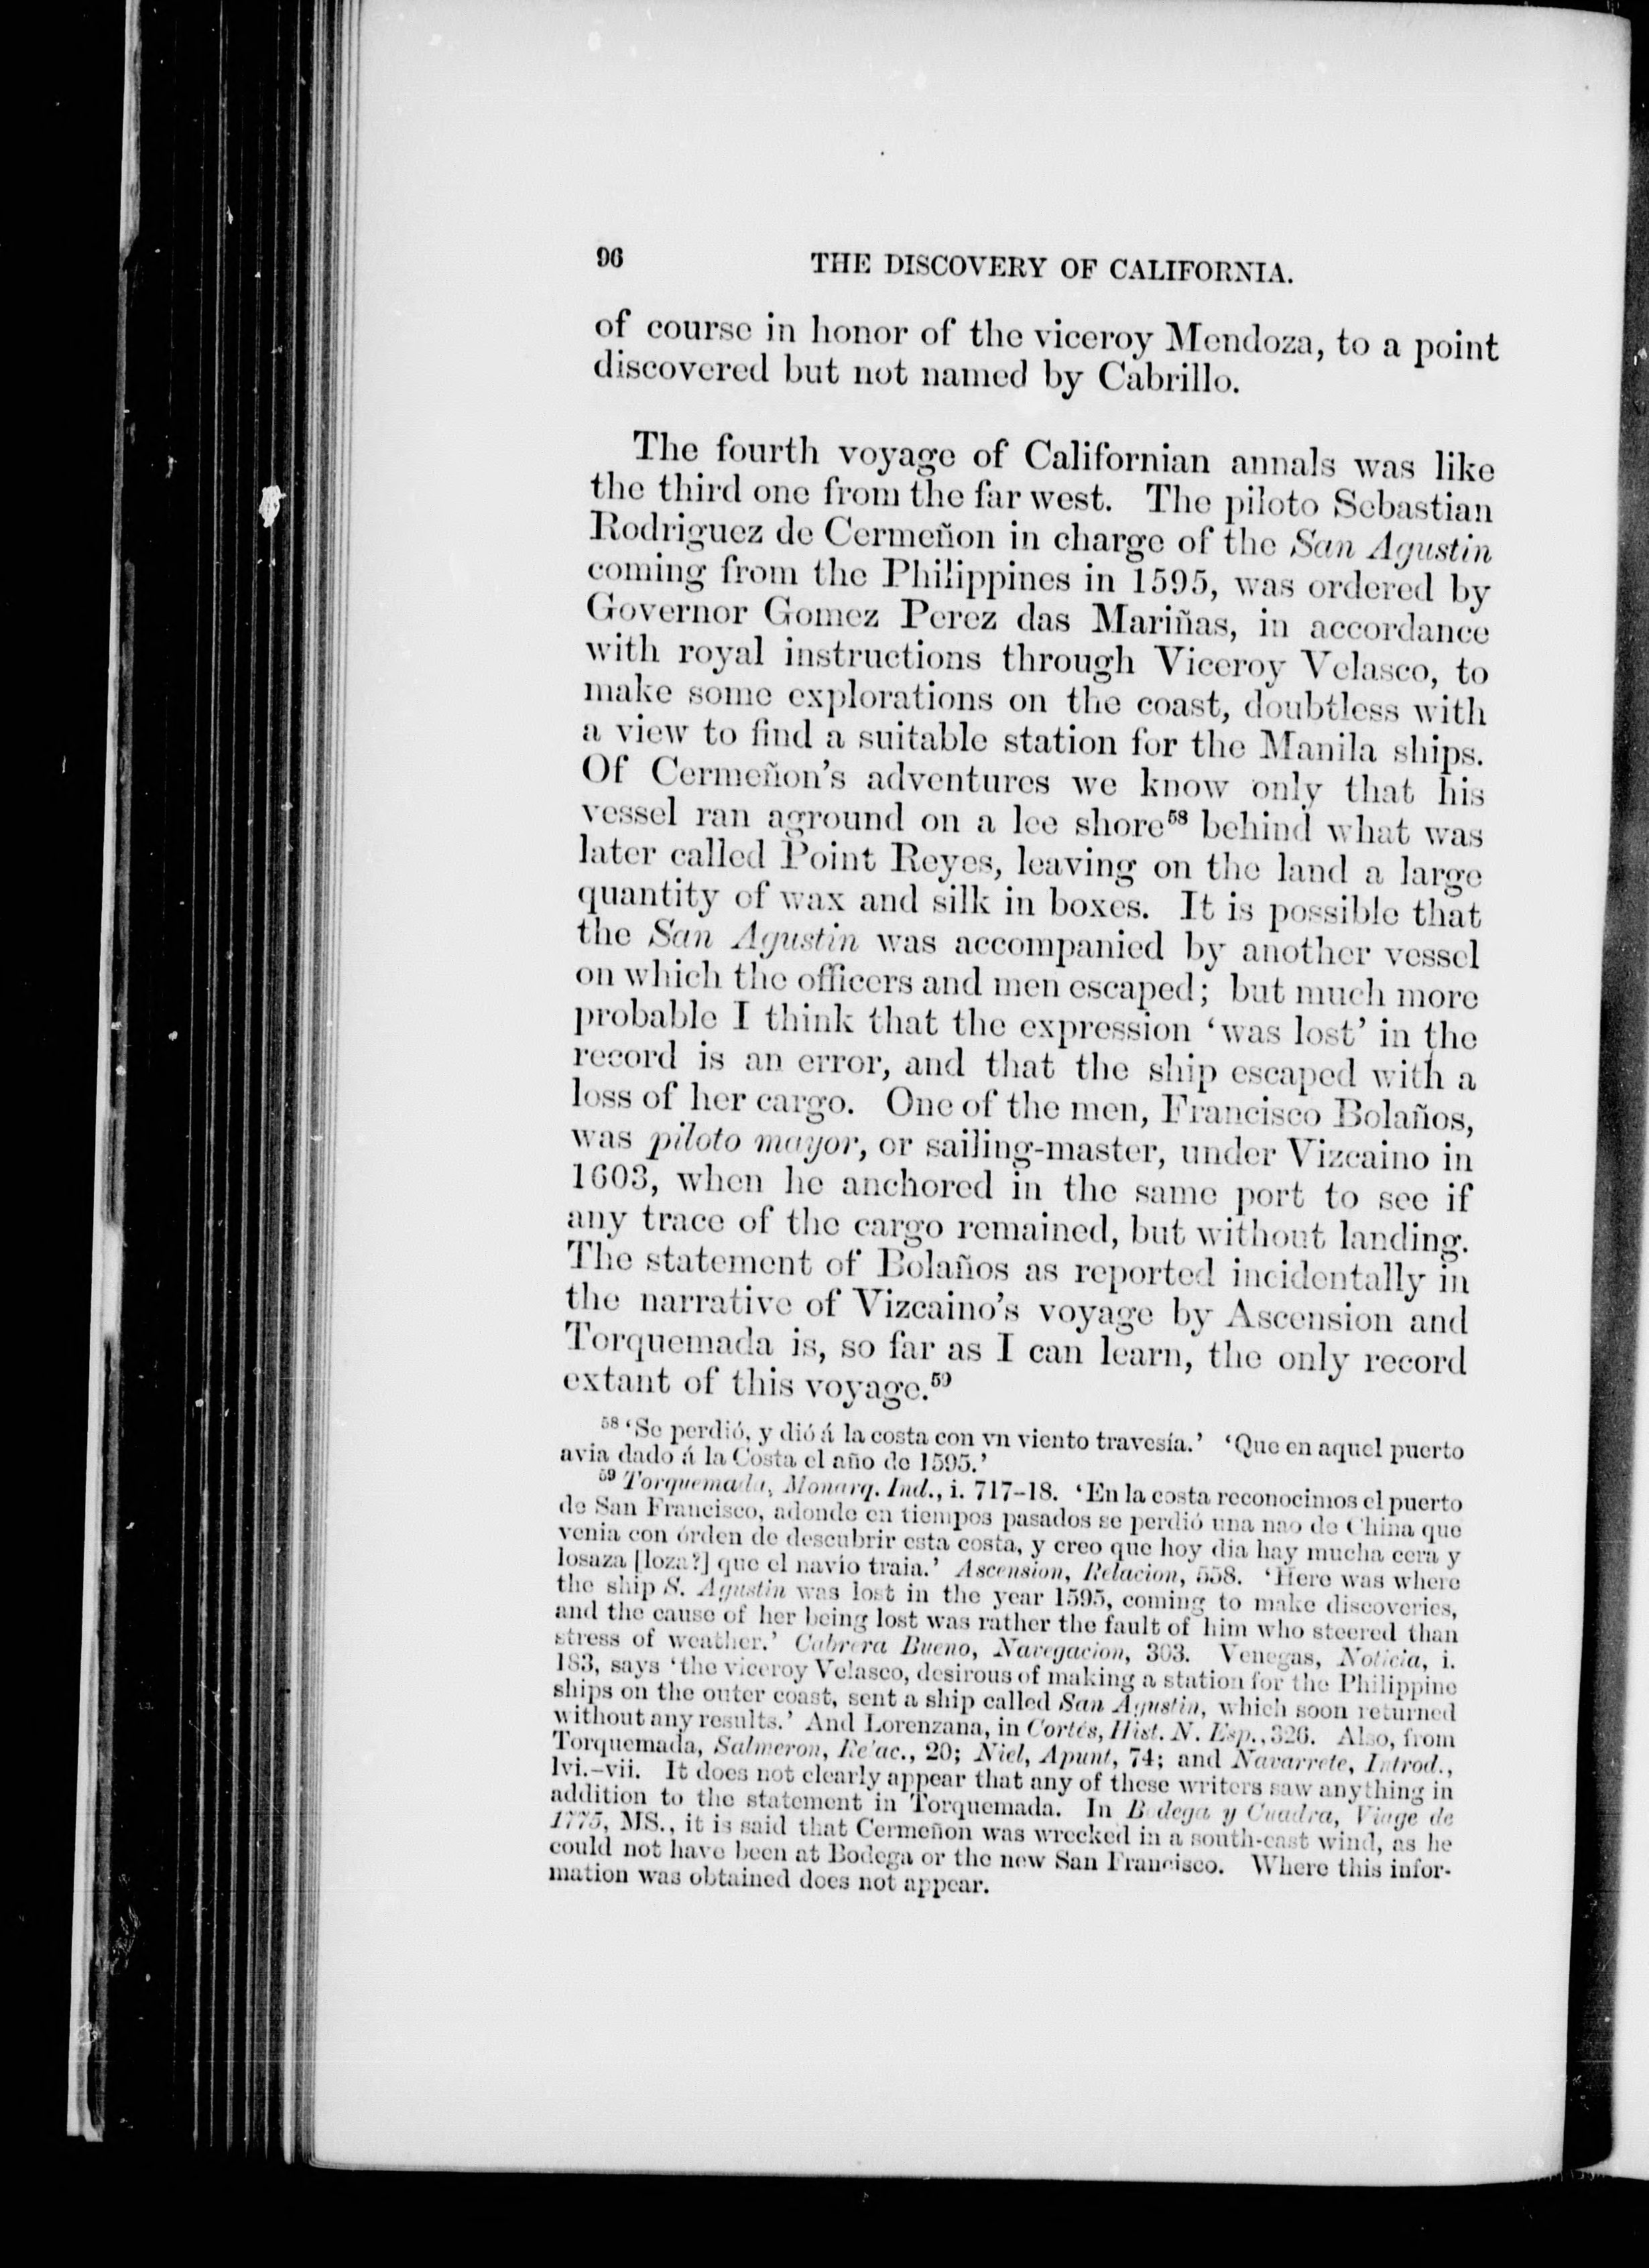 96 THE DISCOVERY OF CALIFORNIA.
of course in honor of the viceroy Mendoza, to a point
discovered but not named by Cabrillo.
The fourth voyage of Californian annals was like
the third one from the far west. The piloto Sebastian
Rodriguez de Cermeñon in charge of the San Agustin
coming from the Philippines in 1595, was ordered by
Governor Gomez Perez das Mariñas, in accordance
with royal instructions through Viceroy Velasco, to
make some explorations on the coast, doubtless with
a view to find a suitable station for the Manila ships.
Of Cermeñon's adventures we know only that his
vessel ran aground on a lee shore⁵⁸ behind what was
later called Point Reyes, leaving on the land a large
quantity of wax and silk in boxes. It is possible that
the San Agustin was accompanied by another vessel
on which the officers and men escaped; but much more
probable I think that the expression 'was lost' in the
record is an error, and that the ship escaped with a
loss of her cargo. One of the men, Francisco Bolaños,
was piloto mayor, or sailing-master, under Vizcaino in
1603, when he anchored in the same port to see if
any trace of the cargo remained, but without landing.
The statement of Bolaños as reported incidentally in
the narrative of Vizcaino's voyage by Ascension and
Torquemada is, so far as I can learn, the only record
extant of this voyage.⁵⁹
⁵⁸ 'Se perdió, y dió á la costa con vn viento travesía.' 'Que en aquel puerto
avia dado á la Costa el año de 1595.'
⁵⁹ Torquemada, Monarq. Ind., i. 717-18. 'En la costa reconocimos el puerto
de San Francisco, adonde en tiempos pasados se perdió una nao de China que
venia con órden de descubrir esta costa, y creo que hoy dia hay mucha cera y
losaza [loza?] que el navío traia.' Ascension, Relacion, 558. 'Here was where
the ship S. Agustin was lost in the year 1595, coming to make discoveries,
and the cause of her being lost was rather the fault of him who steered than
stress of weather.' Cabrera Bueno, Navegacion, 303. Venegas, Noticia, i.
183, says 'the viceroy Velasco, desirous of making a station for the Philippine
ships on the outer coast, sent a ship called San Agustin, which soon returned
without any results.' And Lorenzana, in Cortés, Hist. N. Esp., 326. Also, from
Torquemada, Salmeron, Relac., 20; Niel, Apunt, 74; and Navarrete, Introd.,
lvi.-vii. It does not clearly appear that any of these writers saw anything in
addition to the statement in Torquemada. In Bodega y Cuadra, Viage de
1775, MS., it is said that Cermeñon was wrecked in a south-east wind, as he
could not have been at Bodega or the new San Francisco. Where this infor-
mation was obtained does not appear.